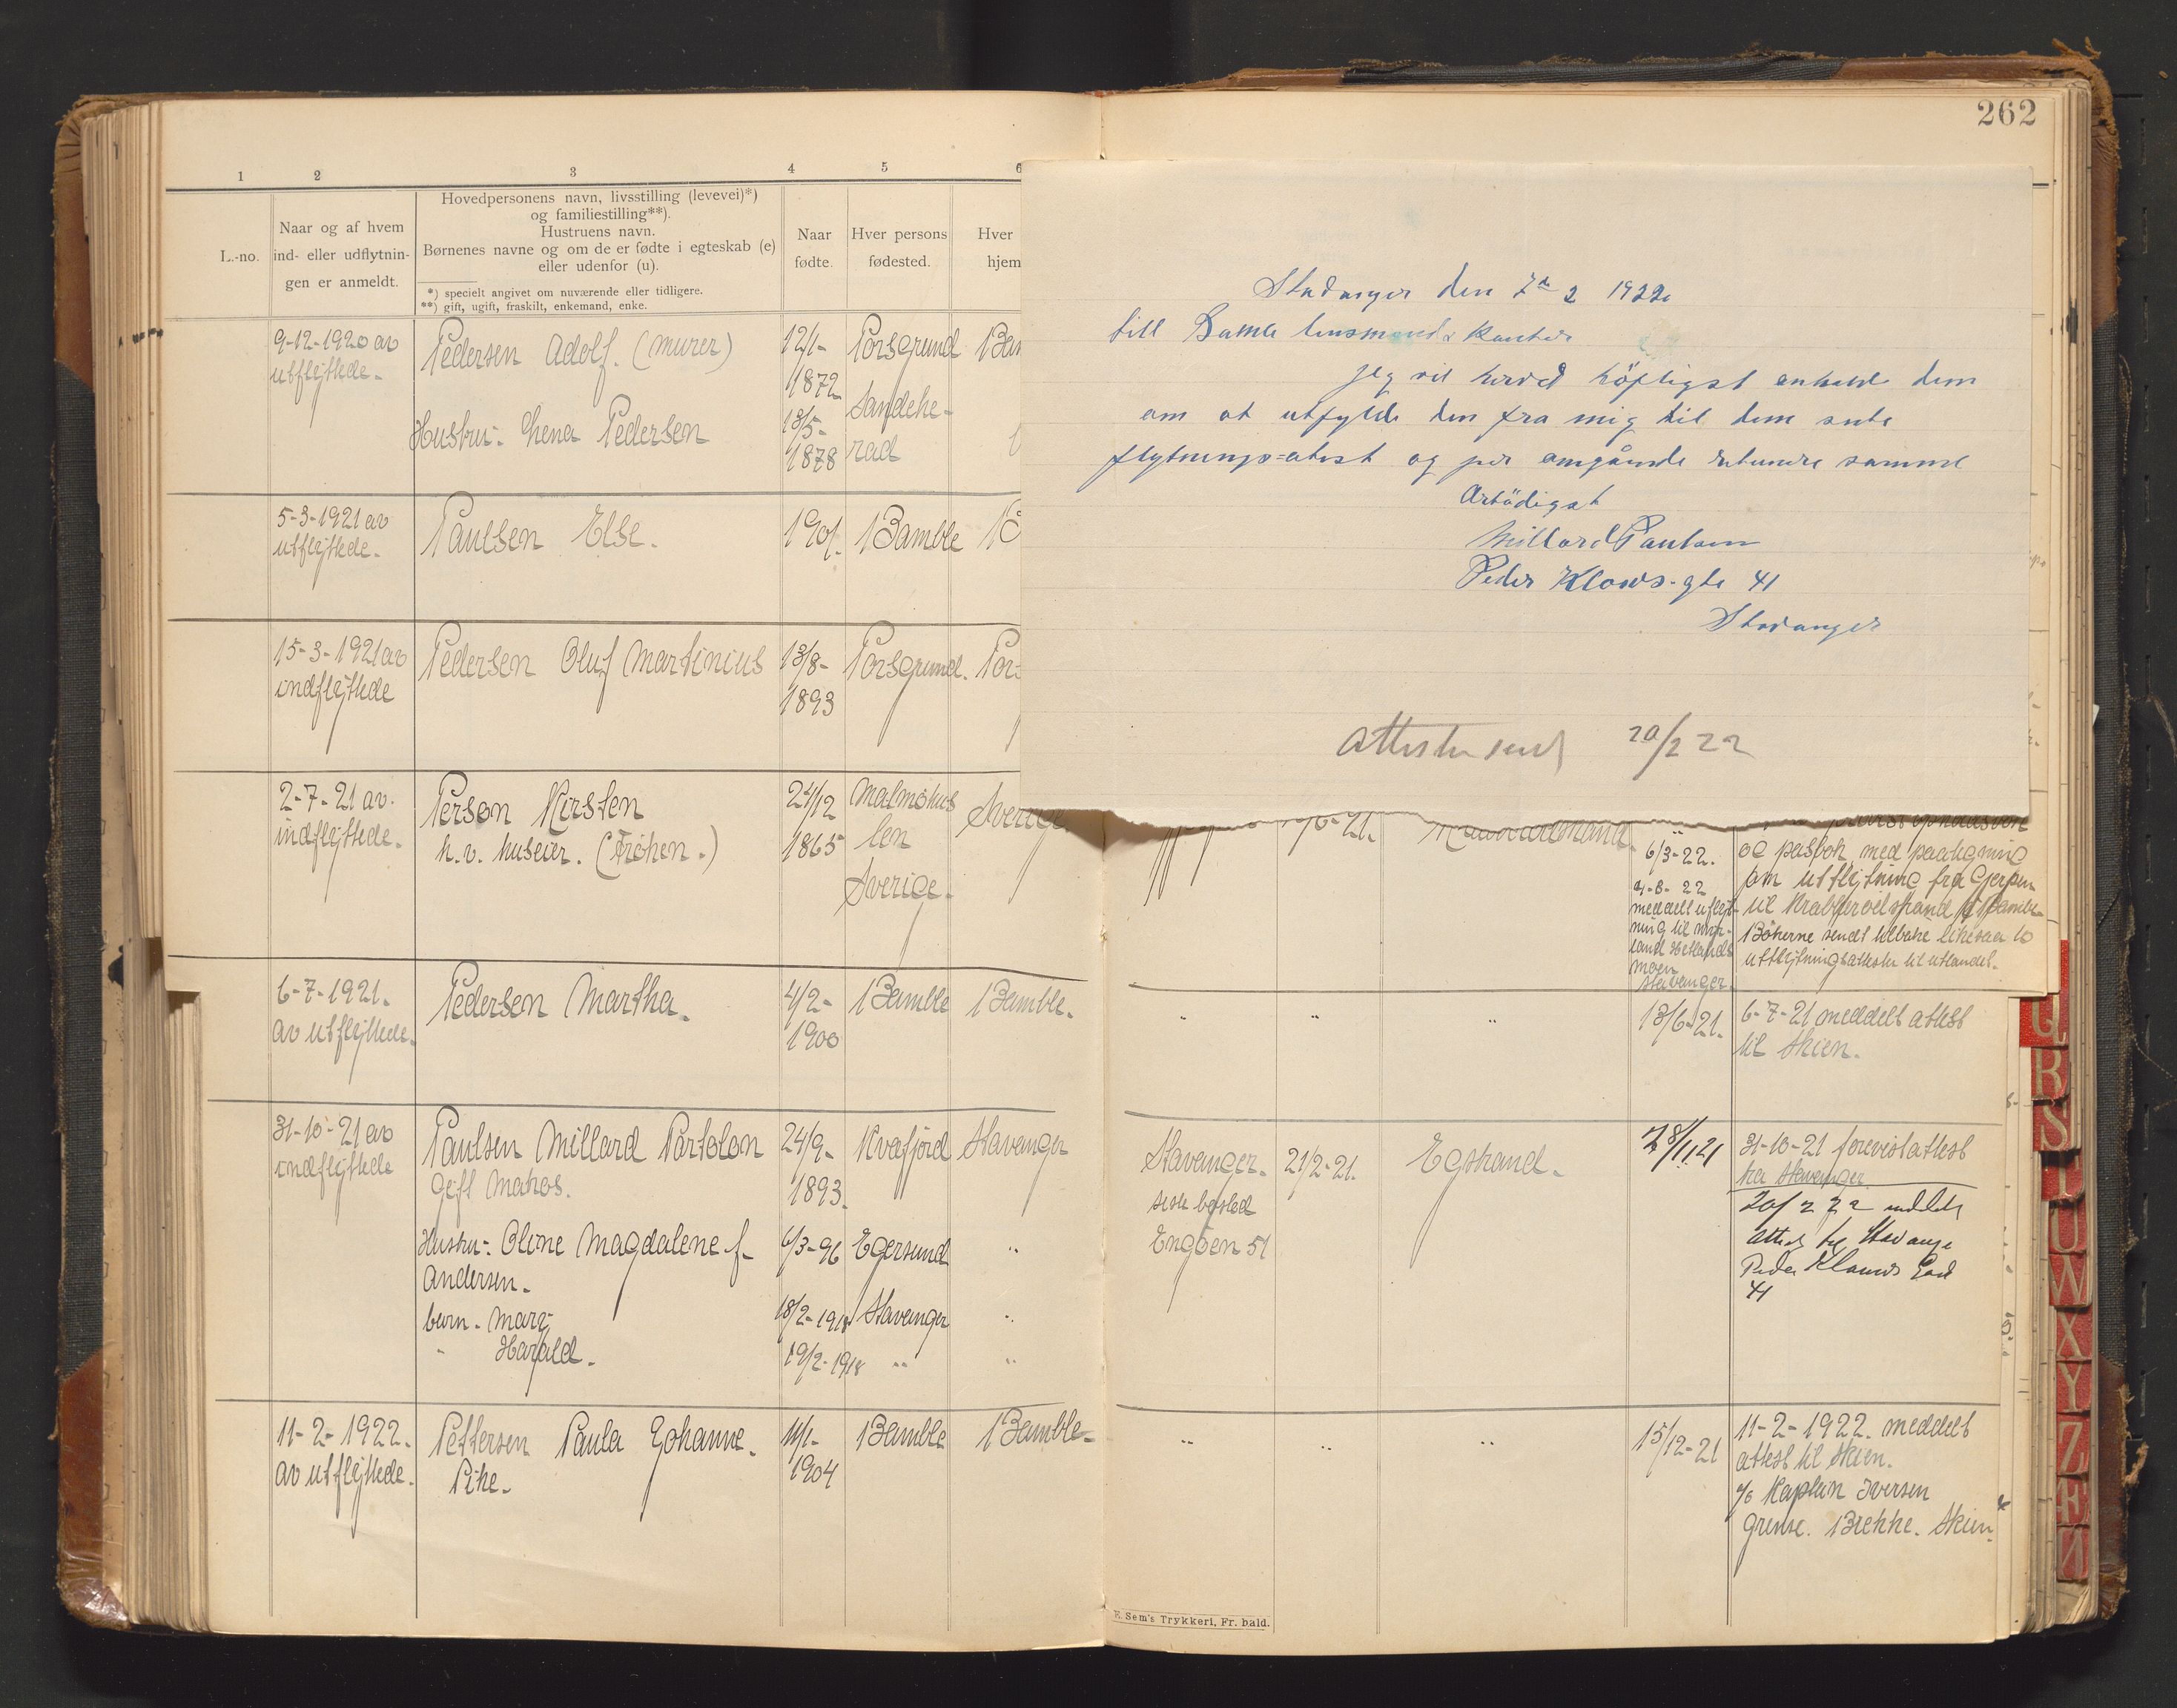 262
1 2 3 4 5 6
L.-no.
Naar og af hvem
ind- eller udflytnin-
gen er anmeldt.
Hovedpersonens navn, livsstilling (levevei)*)
og familiestilling**).
Hustruens navn.
Børnenes navne og om de er fødte i egteskab (e)
eller udenfor (u).
*) specielt angivet om nuværende eller tidligere.
**) gift, ugift, fraskilt, enkemand, enke.
Naar
fødte.
Hver persons
fødested.
Hver
hjem
9-12-1920 av
utflyttede.
Pedersen Adolf. (murer)
12/1-
1872
Porsgrund
Hustru: Lena Pedersen
13/5-
1878
Sandehe-
rad
5-3-1921 av
utflyttede.
Paulsen Else.
1901.
Bamble
15-3-1921 av
indflyttede
Pedersen Oluf Martinius
13/8-
1893
Porsgrund.
Por
2-7-21 av.
indflyttede.
Person Kirsten
h.v. huseier. (Frøken.)
24/12
1865
Malmøhus
len
Sverige.
Sverige
6-7-1921.
av utflyttede.
Pedersen Martha.
4/2-
1900
Bamble
Bamble.
31-10-21 av
indflyttede
Paulsen Millard Partolon
gift Matros.
24/9-
1893.
Kvæfjord
Stavanger
Hustru: Oline Magdalene f.
Andersen.
6/3-96
Egersund
"
barn. Mary
18/2-1918
Stavanger
"
" Harald.
19/2-1918
"
"
11-2-1922.
av utflyttede.
Pettersen Paula Johanne.
Pike.
11/1-
1904
Bamble
Bamble
Stavanger den 7de 2 1922
till Bamle lensmands kontor
jeg vil herved höfligst anholde dem
om at utfylde den fra mig til dem sente
flytnings=atest og per omgånde returnere samme
Ärbödigst
Millard Paulsen
Peder Klows-gte 41
Stavanger
attesten sendt 20/2 22
6/3-22.
4-8-22
meddelt utflyt-
ning til
Stavanger.
og pasbok med paategning
om utflytning fra Gjerpen
til Krabberødstrand i Bamble
Bøkerne sendt tilbake likesaa to
utflytningsattester til utlandet.
" " "
13/6-21.
6-7-21 meddelt attest
til Skien.
Stavanger.
siste bosted
Engøen 51
21/2-21.
Egstrand.
28/11 21
31-10-21 forevist attest
fra Stavanger.
20/2 22 meddelt
attest til Stavanger
Peder Klaws Gad
41
" " "
15/12-21
11-2-1922. meddelt
attest til Skien.
c/o Kaptein Iversen
Grense. Brekke. Skien.
E. Sem's Trykkeri, Fr.hald.
Q
R
S
T
U
W
X
Y
Z
Æ